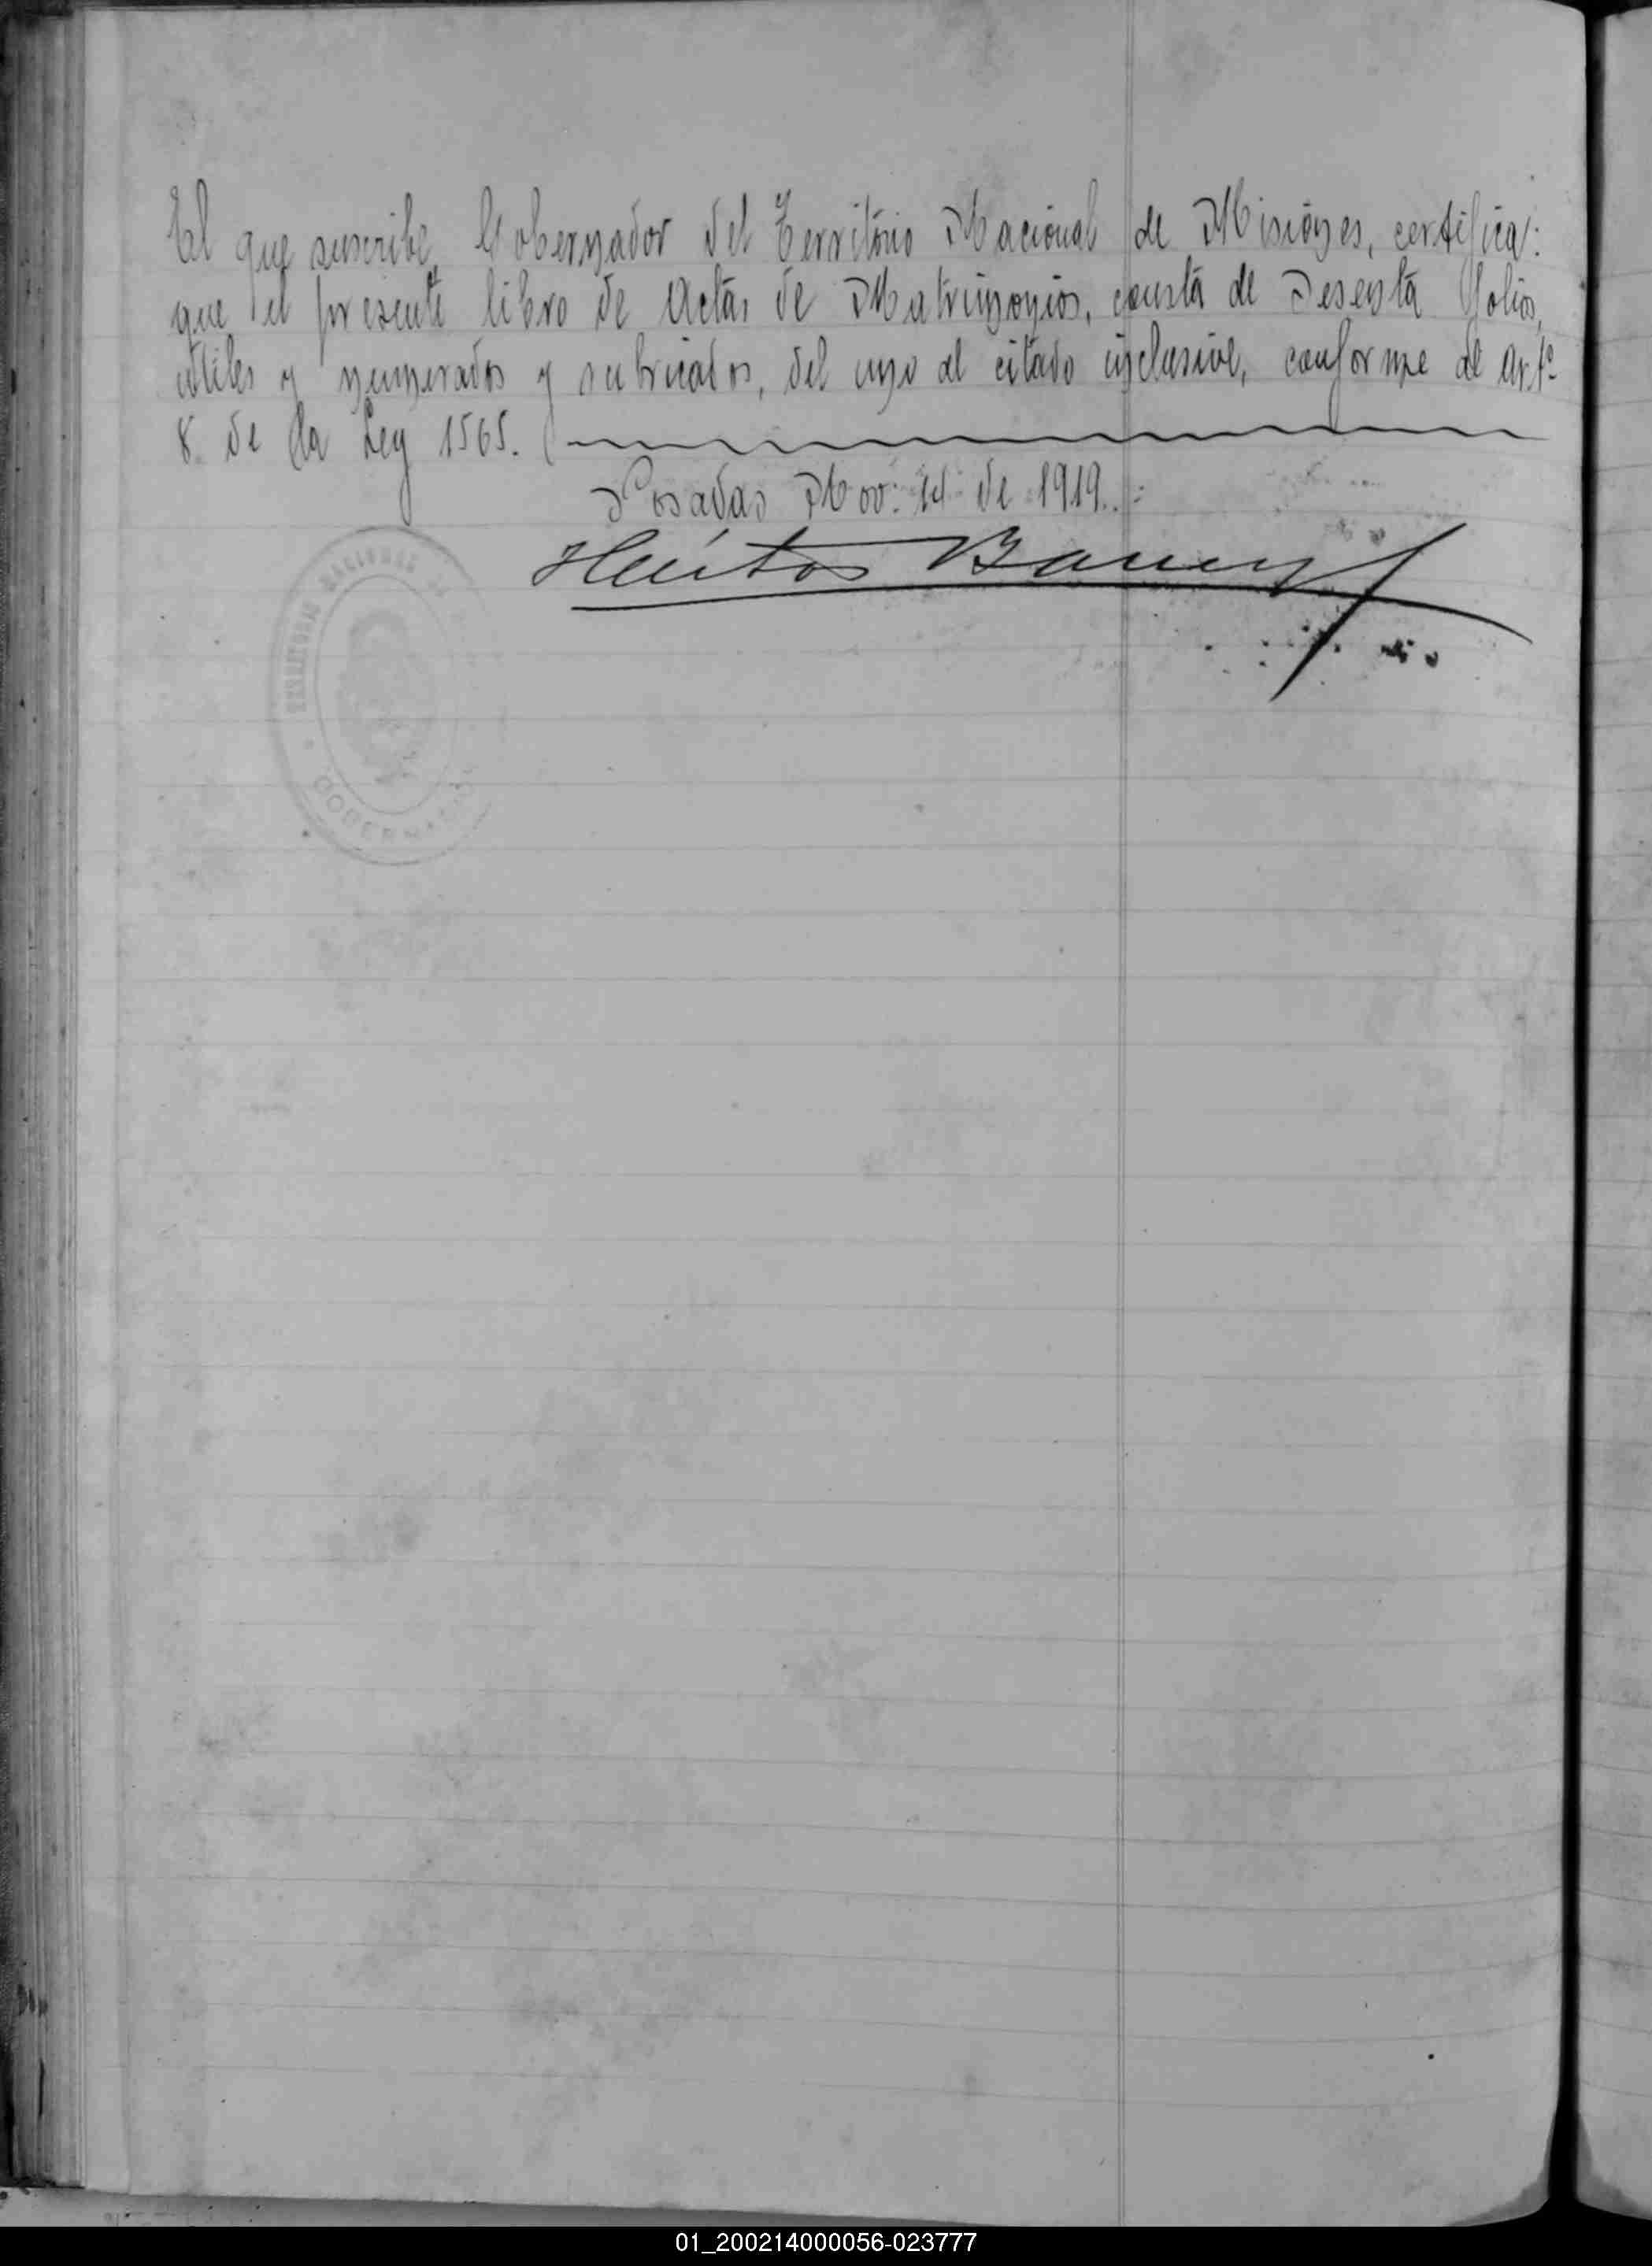 El que suscribe, Gobernador del Territorio Nacional de Misiones, certifica:
que el presente libro de Actas de Matrimonios, consta de Sesenta folios,
utiles y numerados y rubricados, del uno al citado inclusive, conforme al art.º
8 de la Ley 1565.
Posadas Nov: 14 de 1919.
Héctor Barreyro
TERRITORIO NACIONAL DE
GOBERNACION
01_200214000056-023777